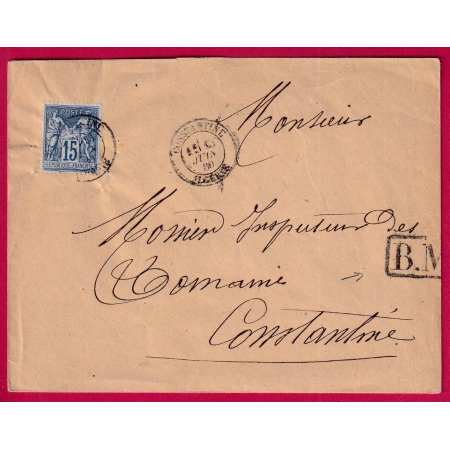 POSTES
15
REPUBLIQUE FRANÇAISE
CONSTANTINE
JUIN
80
ALGERIE
Monsieur
Inspecteur des
Domaine
B.M
Constantine